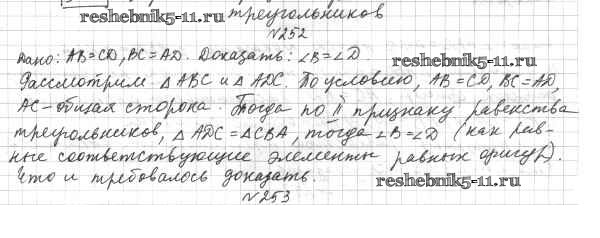 reshebnik5-11.ru треугольников
№252
Дано: AB=CD, BC=AD. Доказать: ∠B=∠D. reshebnik5-11.ru
Рассмотрим △ABC и △ADC. По условию, AB=CD, BC=AD,
AC-общая сторона. Тогда по II признаку равенства
треугольников, △ADC=△CBA, тогда ∠B=∠D (как рав-
ные соответствующие элементы равных фигур).
Что и требовалось доказать. reshebnik5-11.ru
№253